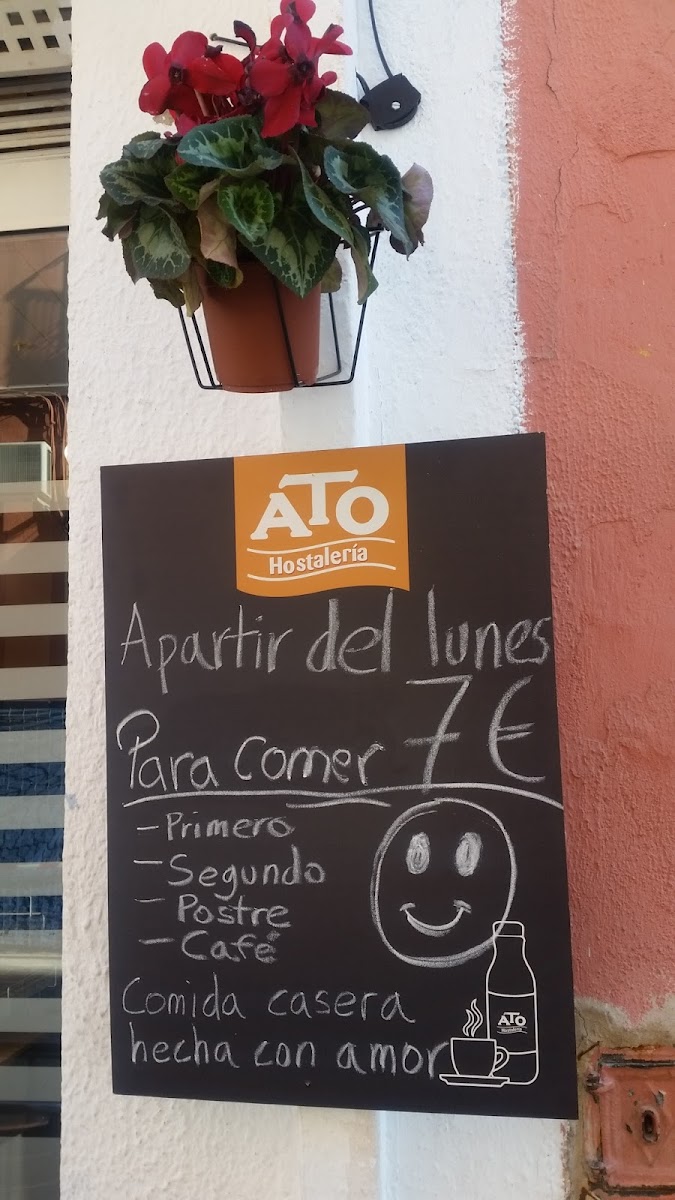 ATO
Hostalería
Apartir del lunes
Para comer 7€
- Primero
- Segundo
- Postre
- Café
Comida casera
hecha con amor
ATO
Hostalería